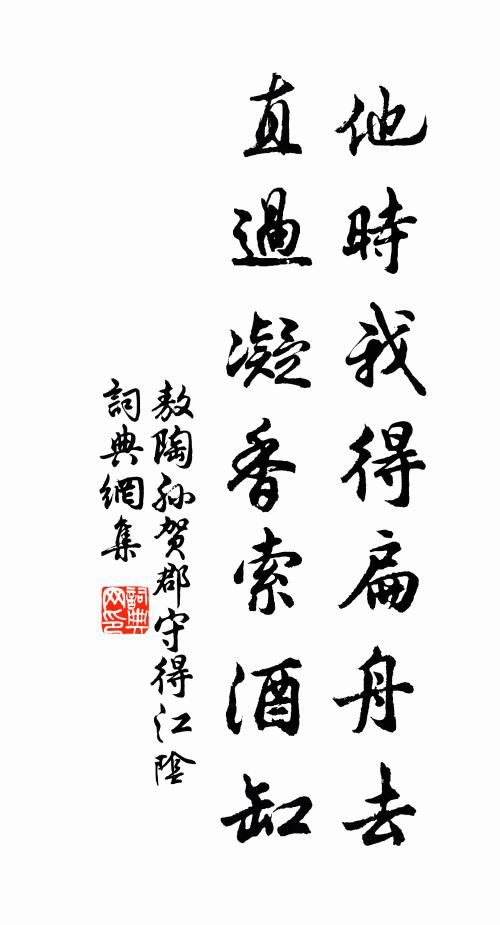 他時我得扁舟去
直過凝香索酒缸
敖陶孫賀郡守得江陰
詞典網集
詞典网印